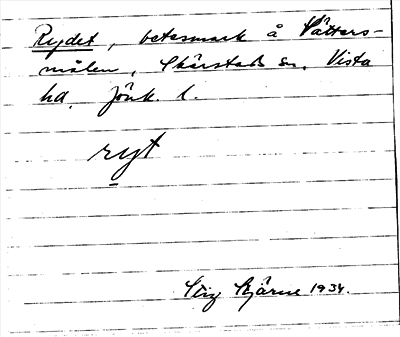 Rydet, betesmark å Vätters-
målen, Skärstads sn. Vista
hd. Jönk. l.
ryt
Stig Bjärne 1934.